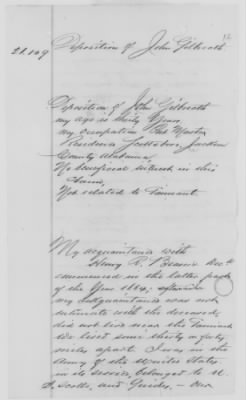 12
Deposition of John Gilbreath
21.109
Deposition of John Gilbreath
my age is thirty Years
my occupation Post Master
Residence Scottsboro, Jackson
County Alabama,
No beneficial interest in this
Claim,
Not related to Claimant.
My acquaintance with
Henry R. Decd
commenced in the latter part
of the Year 1864; afterwards
my acquaintance was not
intimate with the deceased,
did not live near the Claimant
We lived some thirty or forty
miles apart. I was in the
Army of the United States
in its service, belonged to U.
S. Scouts, and Guides, - Our